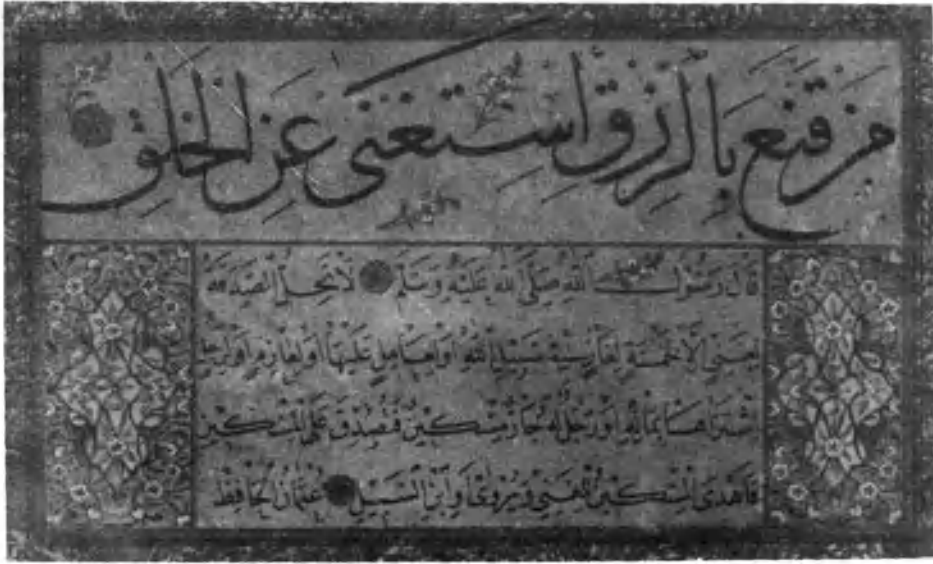 من قنع بالرزق استغنى عن الخلق
قال رسول الله صلى الله عليه وسلم لا تحل الصدقة
لغني الا لخمسة لغاز في سبيل الله او لعامل عليها او لغارم او لرجل
اشتراها بماله او رجل له جار مسكين فتصدق على المسكين
فاهدى المسكين للغني ويروى او ابن السبيل عثمان الحافظ